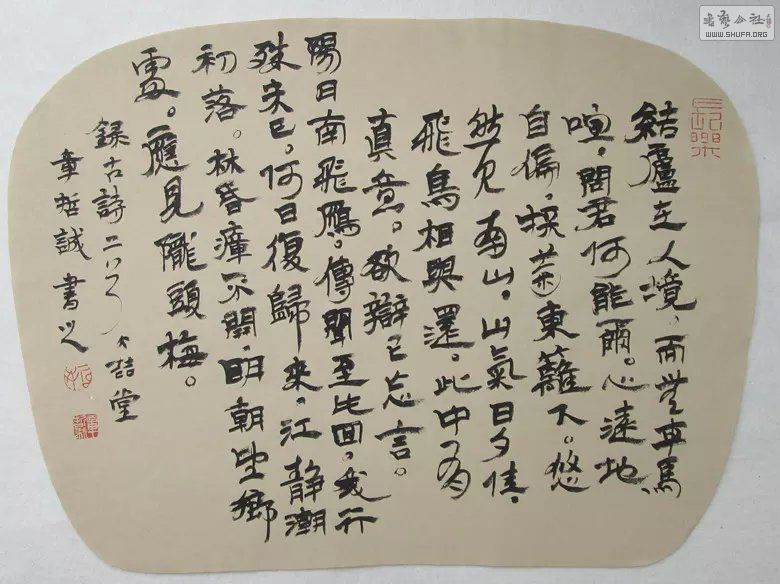 書藝公社
WWW.SHUFA.ORG
長樂
結廬在人境。而無車馬
喧。問君何能爾。心遠地
自偏。採菊東籬下。悠
然見南山。山氣日夕佳。
飛鳥相與還。此中有
真意。欲辯已忘言。
陽月南飛鴈。傳聞至此回。我行
殊未已。何日復歸來。江静潮
初落。林昏瘴不開。明朝望鄉
處。應見隴頭梅。
録古詩二首 喆堂
章哲誠書之